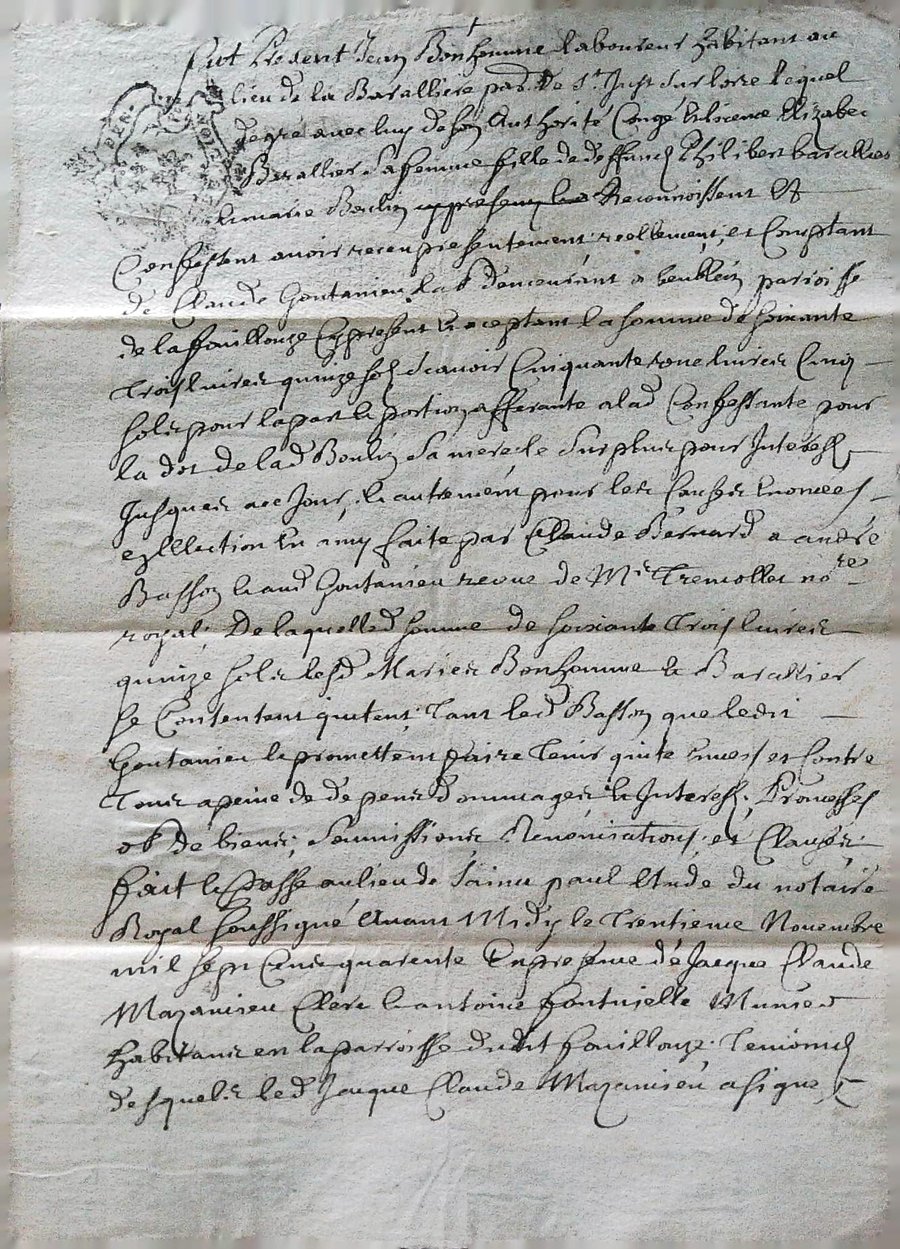 Fut Present Jean Bonhomme laboureur habitant au
lieu de la Baralliere par. de St Just sur loire lequel
de gre avec luy de son Authorité Congé & licence Elizabet
Barallier sa femme fille de deffunct Philibert barallier
& marie Boulin Reconnoissent Et
Confessent avoir receu presentement reellement, et Comptant
de Claude Goutanieu lab. demeurant a paroisse
de la foüillouze Cy present & aceptant la somme de soixante
Trois livres quinze sols scavoir Cinquante livres Cinq
sols pour la part & portion afferante a lad Confessante pour
la dot de lad Boulin sa mere & le surplus pour Interest
Jusques a ce Jour, & autrement pour les Causes
Ellection En amy faite par Claude Bernard a andré
Basson & aud Goutanieu receue de Mr Tremollet nore
royal. De laquelle d somme de soixante Trois livres
quinze sols lesd Mariés Bonhomme & Barallier
se Contentent quitent, Tant led Basson que ledit
Goutanieu & promettent faire Tenir quite Envers et Contre
Tous a peine de depens Dommages & Interest, Promesses
ob. de biens, soumissions Renonciations, et Clauses
fait & Passé au lieu de Sainct paul Etude du notaire
Royal soussigné Avant Midy le Trentieme Novembre
mil sept Cens quarente En presence de Jacque Claude
Mazanieu Clerc & antoine fontvielle
habitans en la paroisse dudit fouillouze Temoins
desquels led Jacque Claude Mazanieu a signé